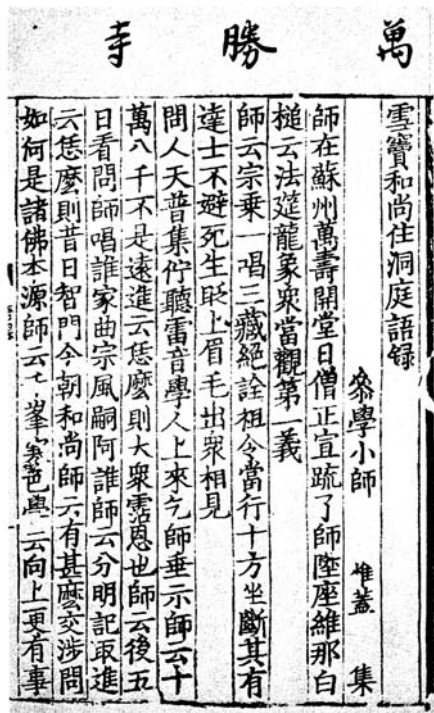 萬勝寺
雪竇和尚住洞庭語録
叅學小師 惟蓋 集
師在蘇州萬壽開堂日僧正宣䟽了師陞座維那白
槌云法筵龍象衆當觀第一義
師云宗乗一唱三藏絕詮祖令當行十方坐斷其有
達士不避死生眨上眉毛出衆相見
問人天普集佇聽雷音學人上來乞師垂示師云十
萬八千不是遠進云恁麽則大衆霑恩也師云後五
日看問師唱誰家曲宗風嗣阿誰師云分明記取進
云恁麽則昔日智門今朝和尚師云有甚麽交涉問
如何是諸佛本源師云千峯寒色與云向上更有事